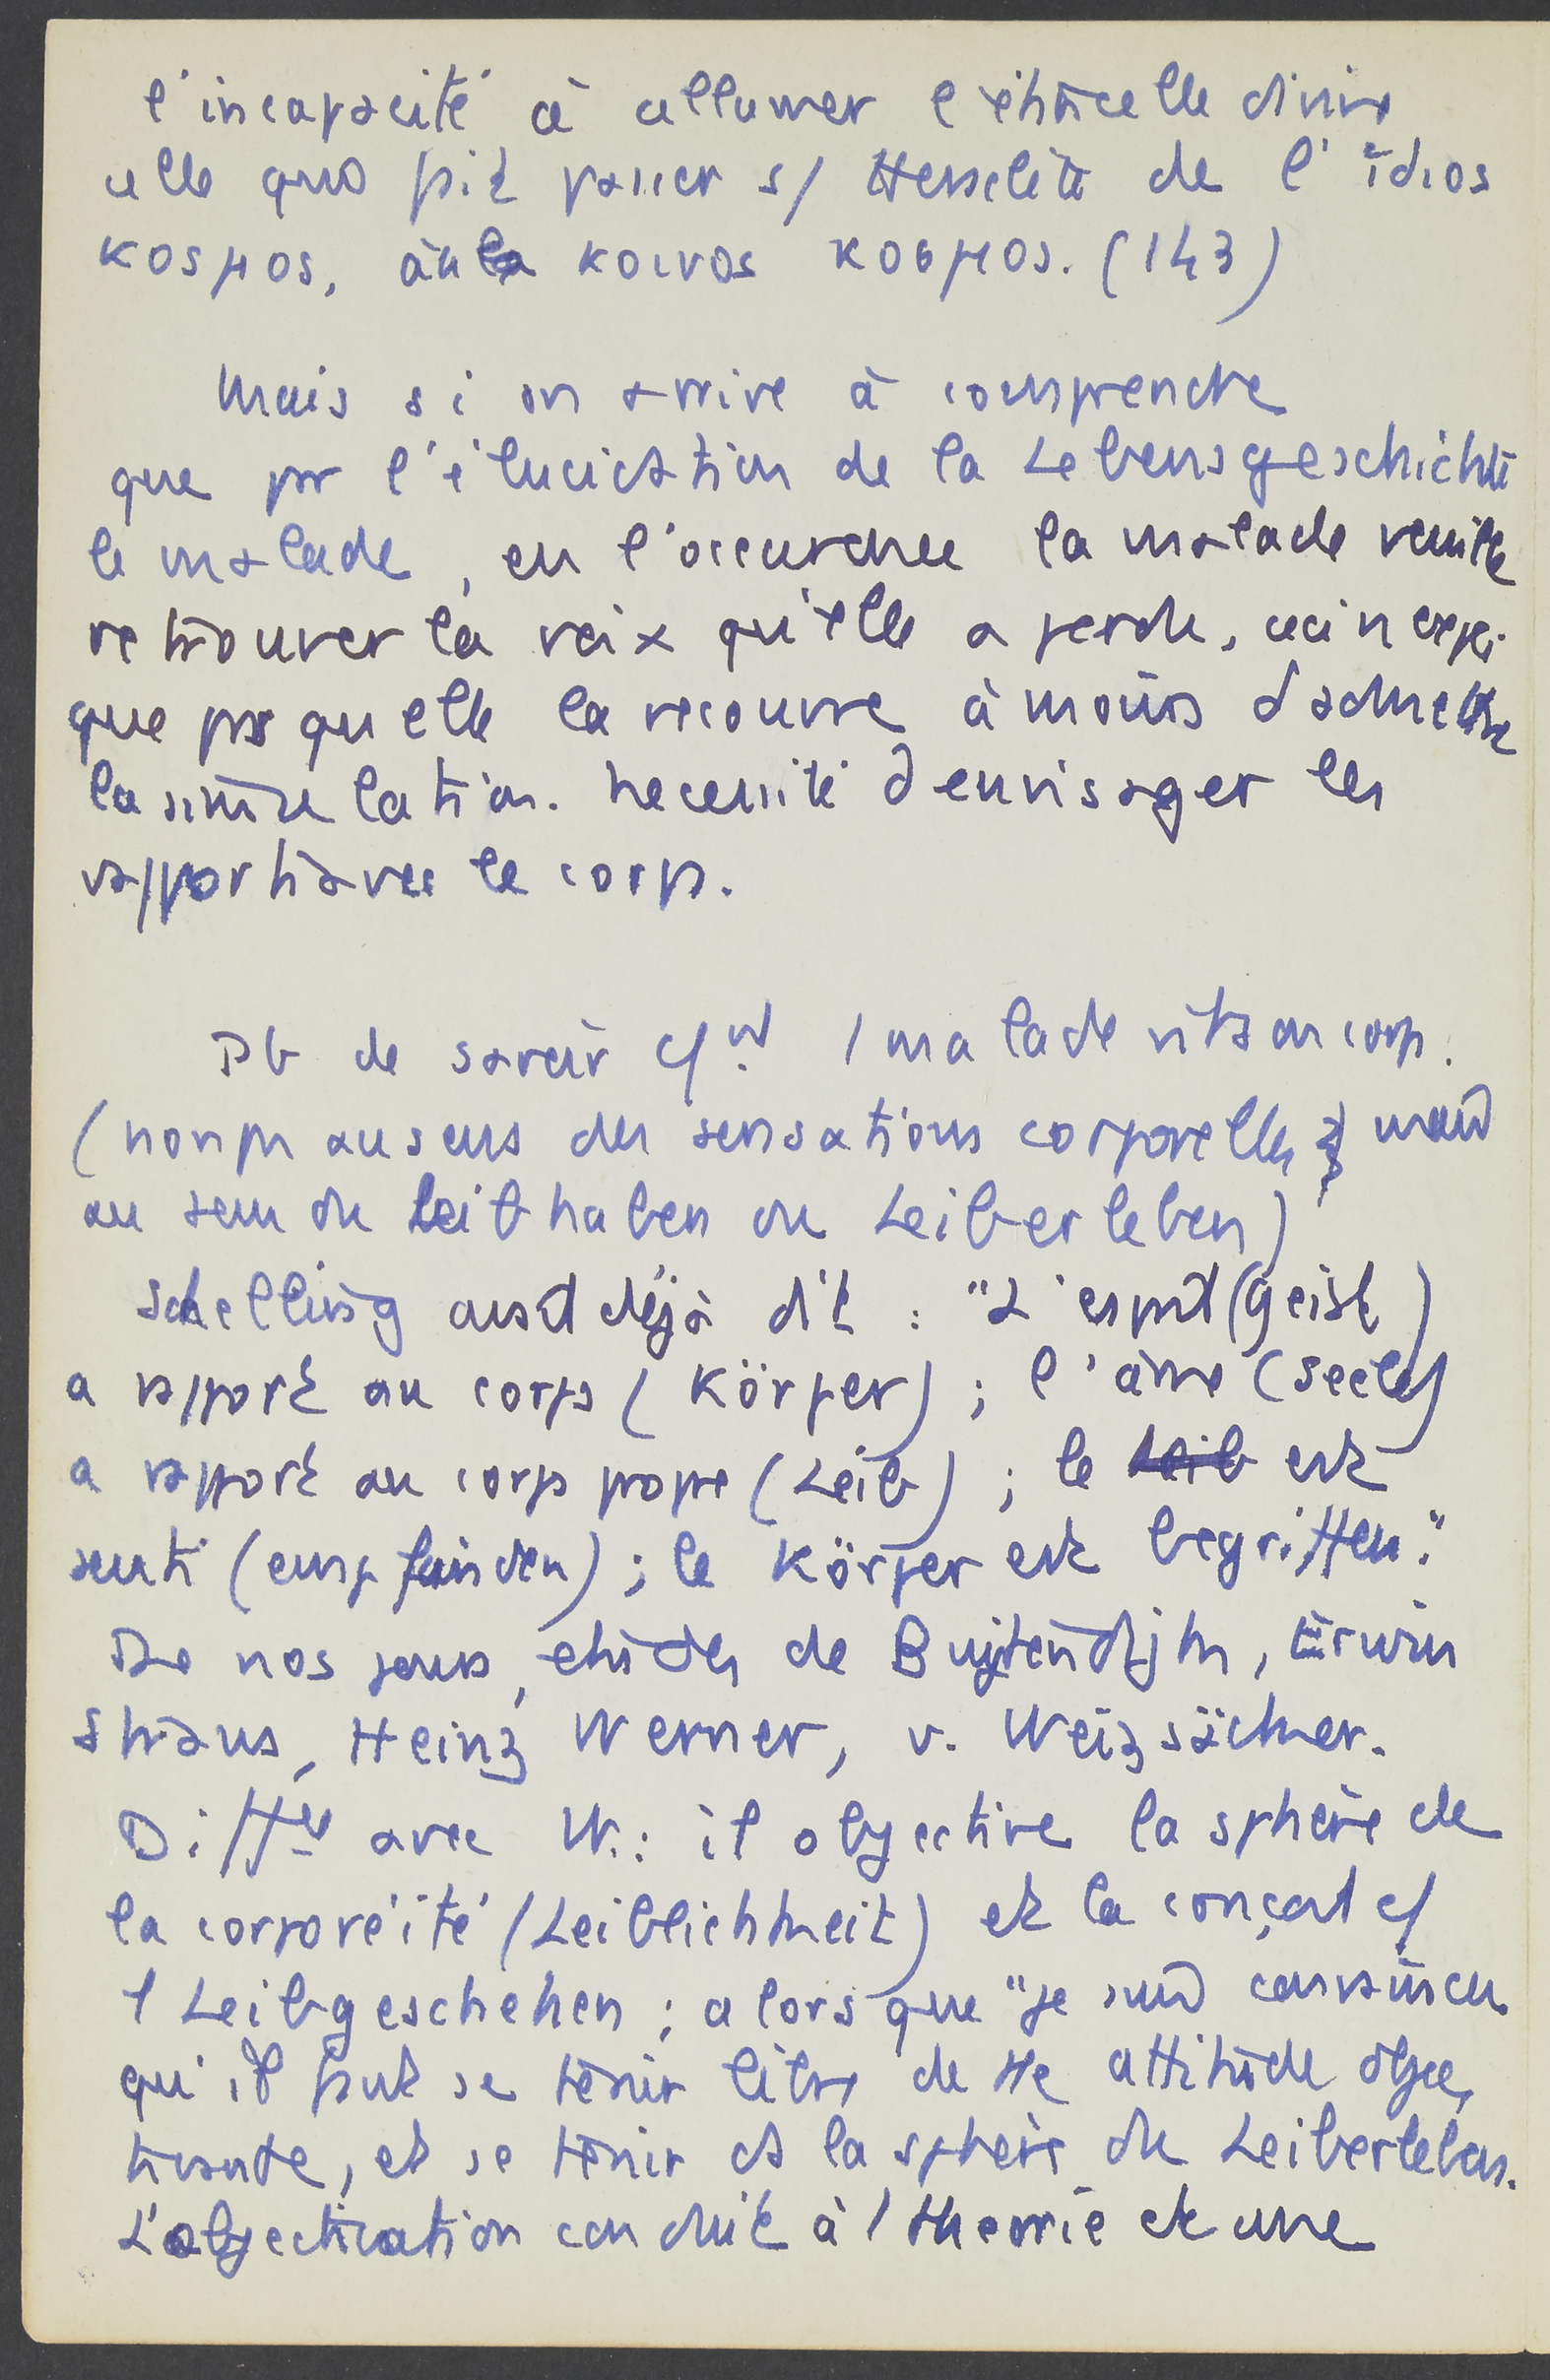 l'incapacité à allumer l'étincelle divine
celle qui fait passer s/ Heraclite de l' idios
κοsμos, au κοινos κοσμos. (143)
Mais si on arrive à comprendre
que par l'élucidation de la Lebensgeschichte
le malade, en l'occurrence la malade veuille
retrouver la voix qu'elle a perdu, ceci n'expli-
que pas qu'elle la recouvre à moins d'admettre
la simulation. Necessité d'envisager les
rapports avec le corps.
Pb de savoir c/nt / malade vit son corps.
(non pas au sens des sensations corporelles, mais
au sens du Leibhaben du Leiberleben)
Schelling avait déjà dit : "L'esprit (Geist)
a rapport au corps (Körper) ; l'âme (Seele)
a rapport au corps propre (Leib) ; le Leib est
senti (empfunden) ; le Körper est begriffen."
De nos jours, études de Buytendijk, Erwin
Straus, Heinz Werner, v. Weizsäcker.
Diffce avec W.: il objective la sphère de
la corporéité (Leiblichkeit) et la conçoit c/
/ Leibgeschehen ; alors que "je suis convaincu
qu'il faut se tenir libre de tte attitude objec
tivante, et se tenir ds la sphère du Leiberleben.
L'objectivation conduit à / theorie et une